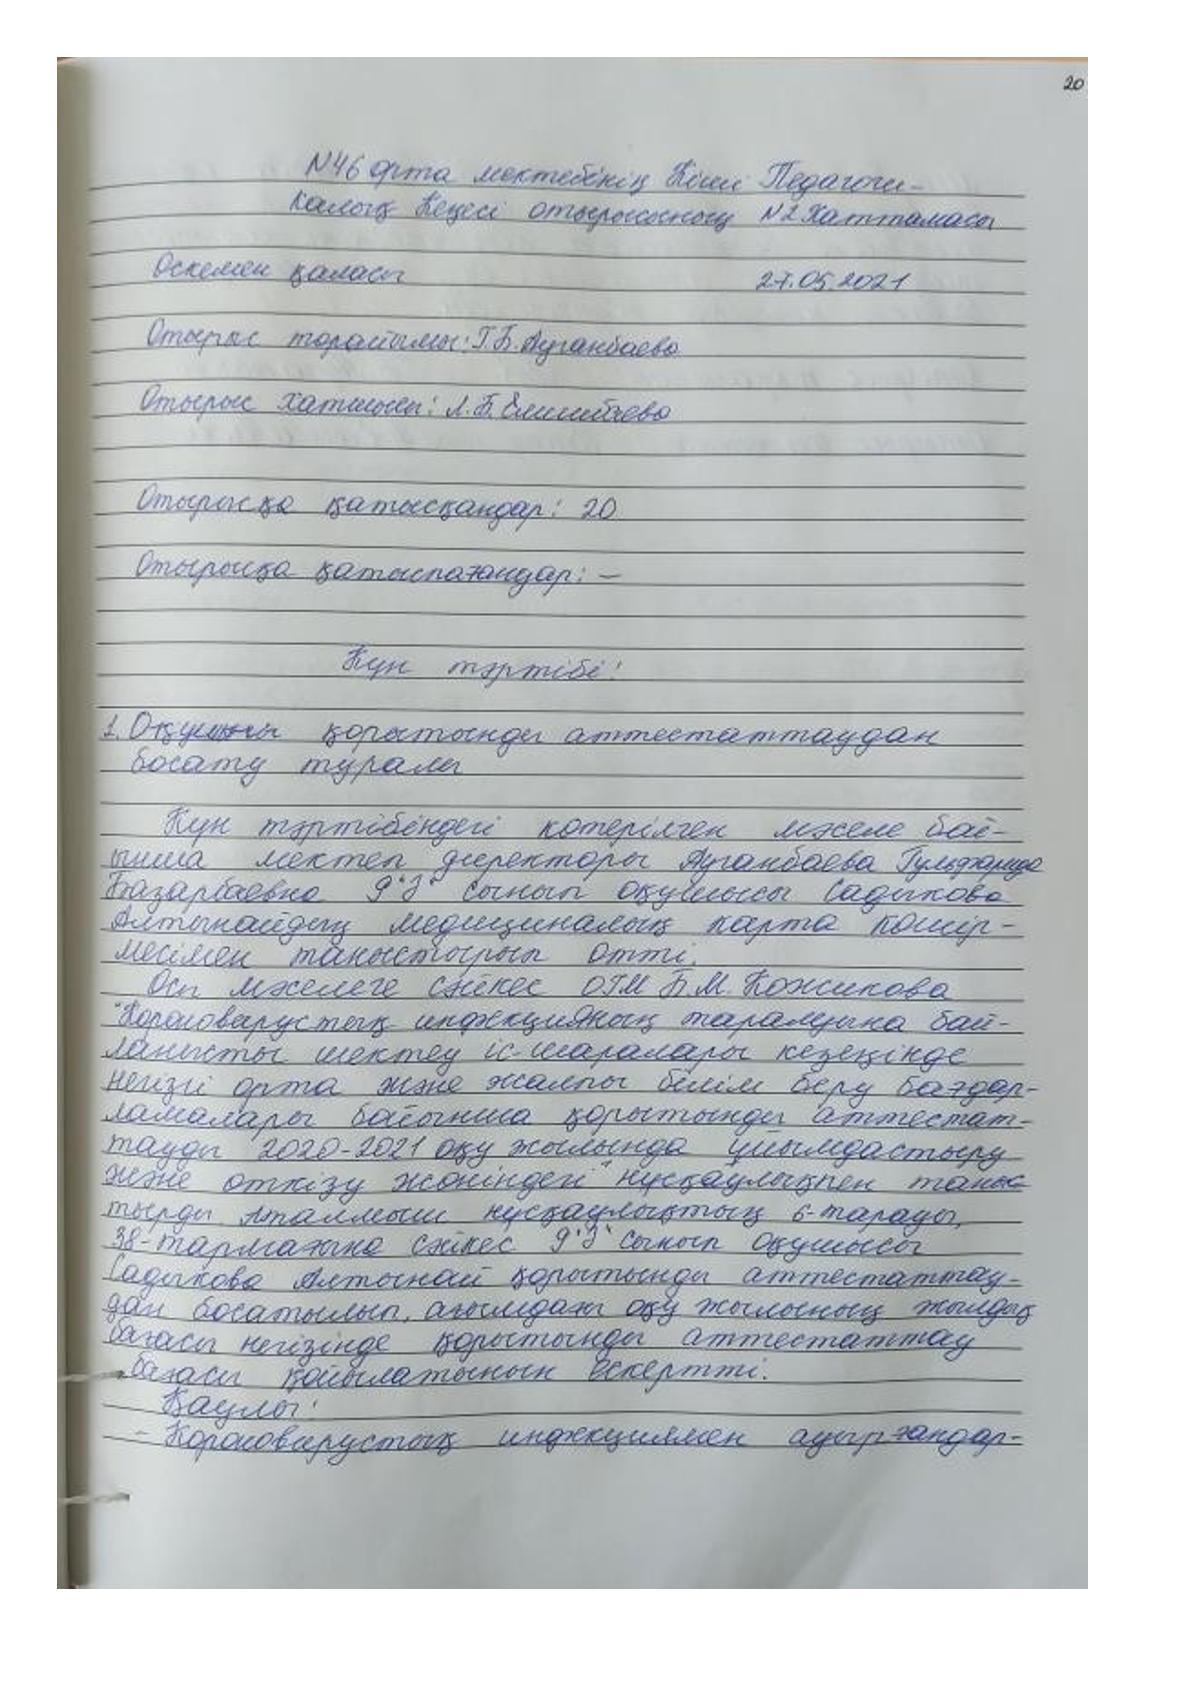 20
N46 орта мектебінің Кіші Педагоги-
калық Кеңесі отырысының N2 Хаттамасы
Өскемен қаласы 27.05.2021
Отырыс төрайымы: Г.Б. Ауганбаева
Отырыс хатшысы: А.Б.
Отырысқа қатысқандар: 20
Отырысқа қатыспағандар: –
Күн тәртібі:
1. Оқушыны қорытынды аттестаттаудан
босату туралы
Күн тәртібіндегі көтерілген мәселе бой-
ынша мектеп директоры Ауганбаева Гульфарида
Базарбаевна 9"З" сынып оқушысы Садыкова
Алтынайдың медициналық карта көшір-
месімен таныстырып өтті.
Осы мәселеге сәйкес ОІМ Б.М. Кожикова
"Короновирустық инфекцияның таралуына бай-
ланысты шектеу іс-шаралары кезеңінде
негізгі орта және жалпы білім беру бағдар-
ламалары бойынша қорытынды аттестат-
тауды 2020-2021 оқу жылында ұйымдастыру
және өткізу жөніндегі" нұсқаулықпен таныс
тырды. Аталмыш нұсқаулықтың 6-тарауы,
38-тармағына сәйкес 9"З" сынып оқушысы
Садыкова Алтынай қорытынды аттестаттау-
дан босатылып, ағымдағы оқу жылының жылдық
бағасы негізінде қорытынды аттестаттау
бағасы қойылатынын ескертті.
Қаулы:
- Короновирустық инфекциямен ауырғандар-